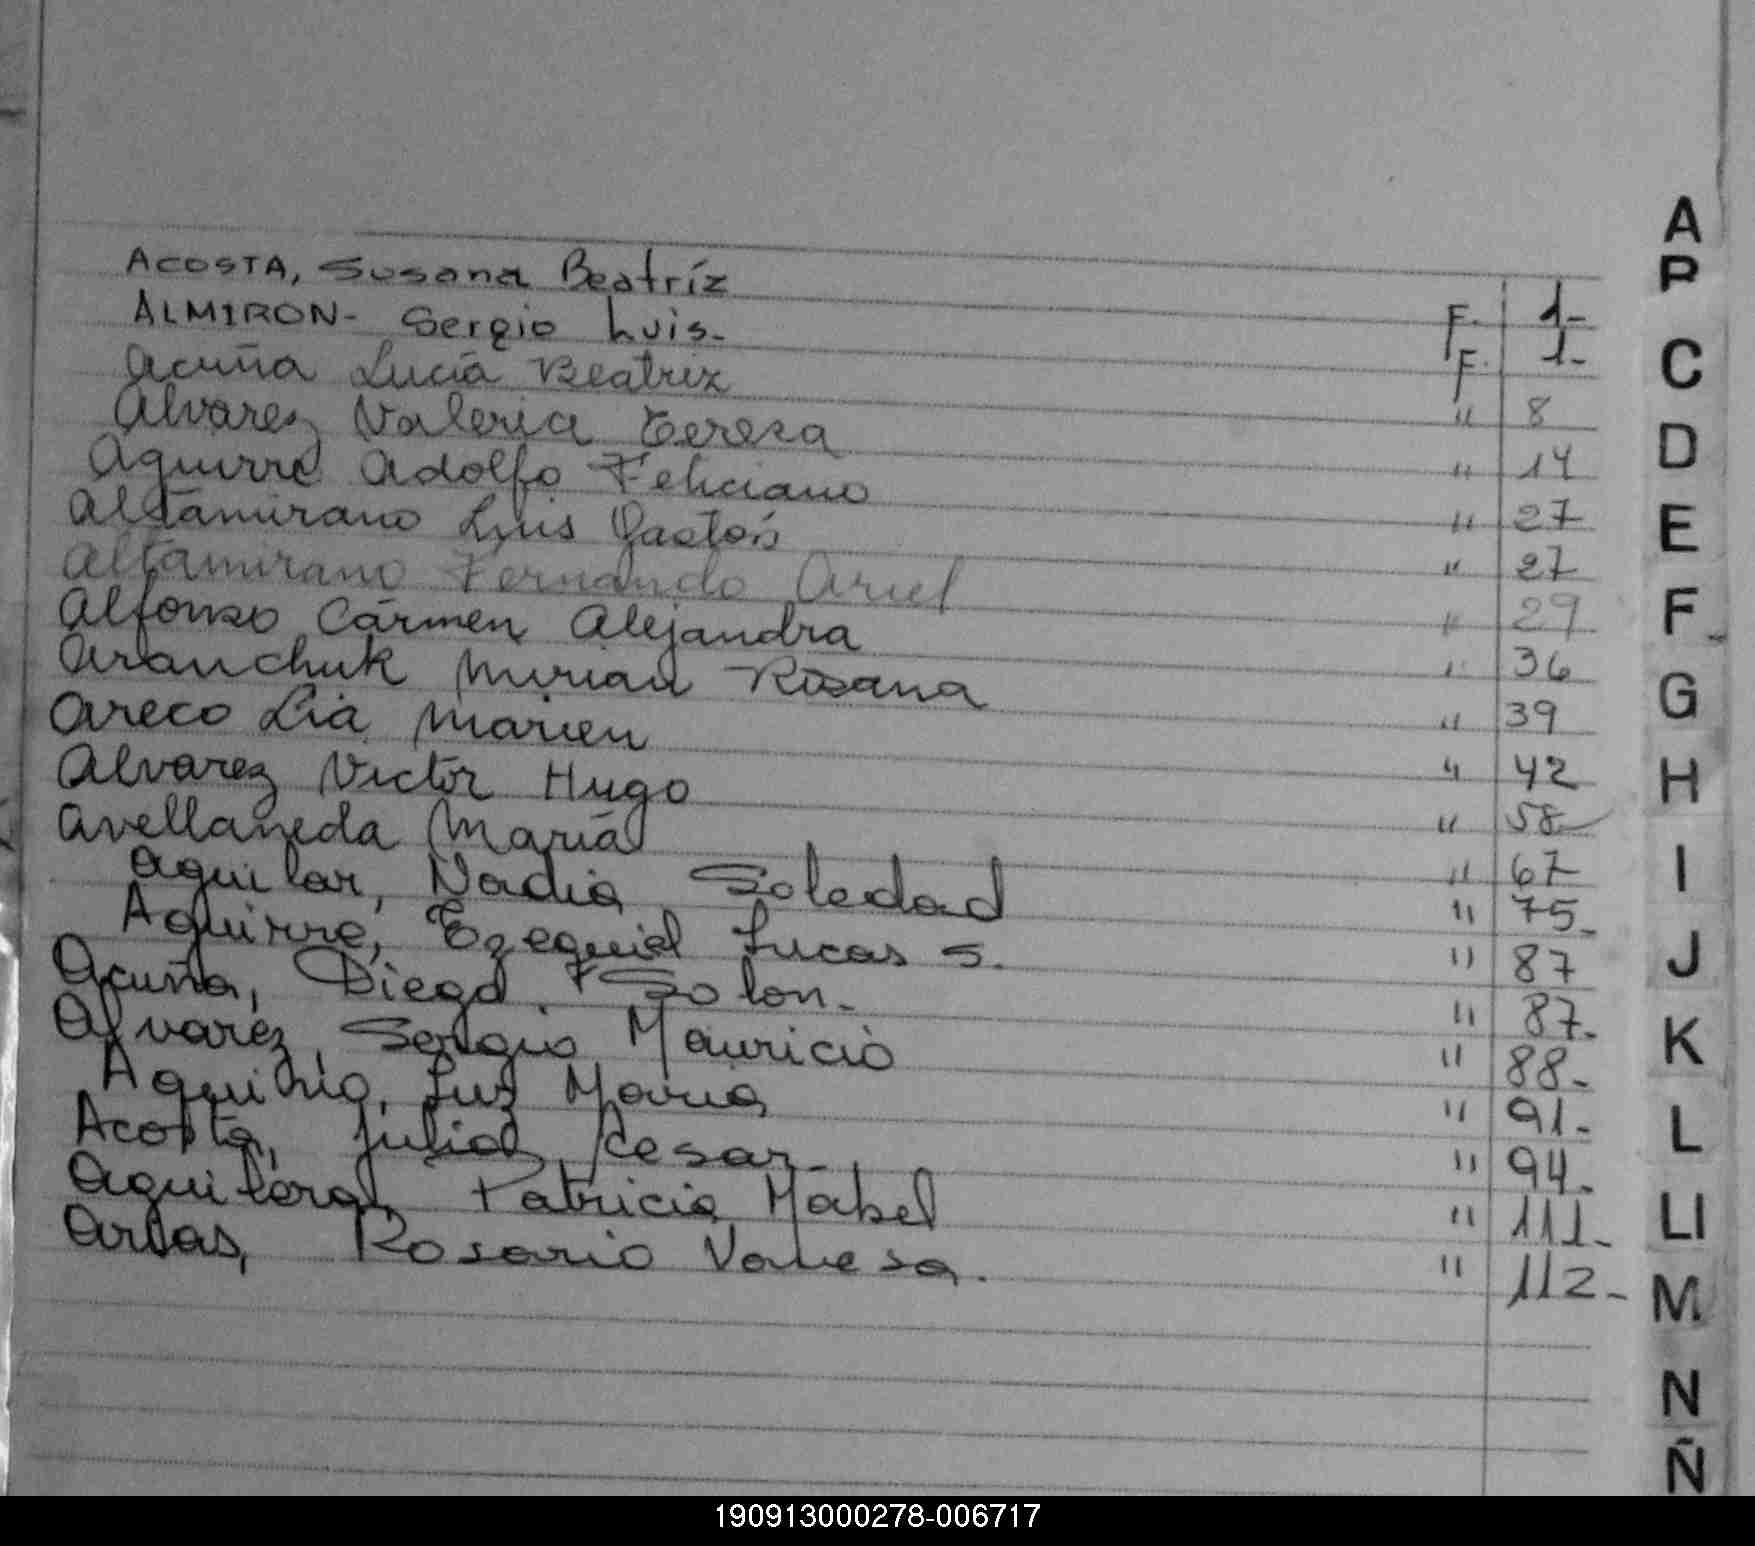 ACOSTA, Susana Beatríz F. 1-
ALMIRON- Sergio Luis- F. 1-
Acuña Lucía Beatriz " 8
Alvarez Valeria Tereza " 14
Aguirre Adolfo Feliciano " 27
Altamirano Luis Gastón " 27
Altamirano Fernando Ariel " 29
Alfonso Carmen Alejandra " 36
Aranchuk Mirian Rosana " 39
Areco Lia Marien " 42
Alvarez Victor Hugo " 58
Avellaneda María " 67
Aguilar, Nadia Soledad " 75-
Aguirre, Ezequiel Lucas S. " 87
Acuña, Diego Solon- " 87-
Alvarez, Sergio Mauricio " 88-
Aquino, Luz Maria " 91-
Acosta, Cesar- " 94-
Aguilera, Patricia Mabel " 111-
Arias, Rosario Vanesa. " 112-
A
C
D
E
F
G
H
I
J
K
L
Ll
M
N
Ñ
190913000278-006717